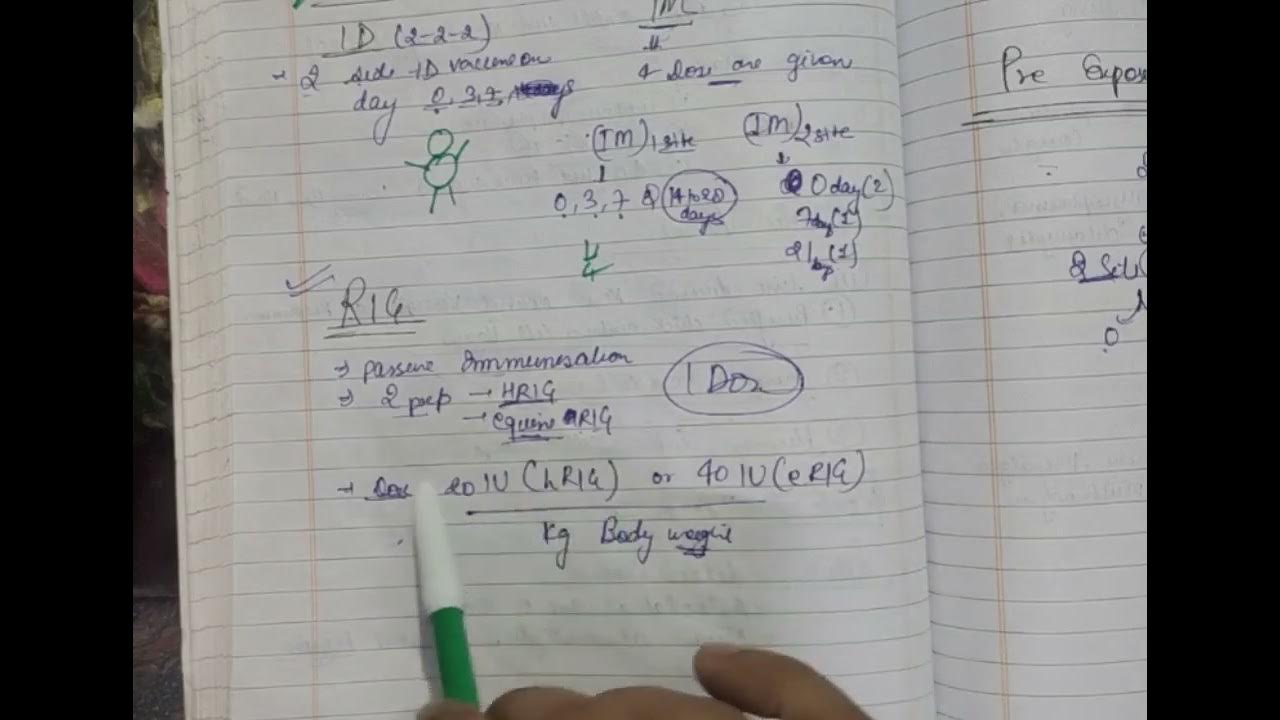 1D (2-2-2)
IM
→ 2 side ID vaccine on
day 0, 3, 7,
4 Dose are given
(IM) 1 site
(IM) 2 site
0, 3, 7 & 14 to 28 days
0 day (2)
7 day (1)
21 day (1)
4
RIG
→ passive Immunisation
→ 2 prep → HRIG
→ equine RIG
1 Dose
→ Dose 20 IU (hRIG) or 40 IU (eRIG)
Kg Body weight
Pre Expos
2 Site
0